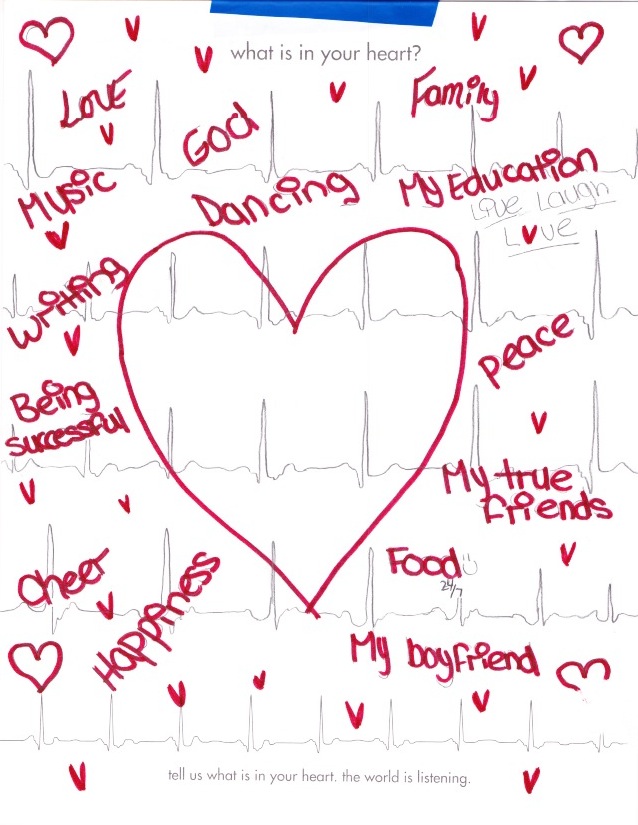 what is in your heart?
LOVE
God
Family
Music
Dancing
My Education
Live Laugh
Love
writting
Peace
Being
successful
My true
friends
Cheer
Happiness
Food
24/7
My boyfriend
tell us what is in your heart. the world is listening.